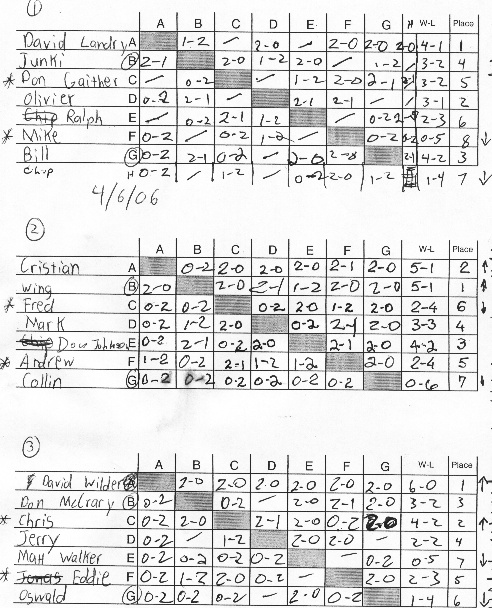 ①
A B C D E F G H W-L Place
David Landry A 1-2 / 2-0 / 2-0 2-0 2-0 4-1 1
Junki B 2-1 2-0 1-2 2-0 / 1-2 / 3-2 4
* Don Gaither C / 0-2 / 1-2 2-0 2-1 2-1 3-2 5
Olivier D 0-2 2-1 / 2-1 2-1 / / 3-1 2
Ralph E / 0-2 2-1 1-2 / 0-2 2-0 2-3 6
* Mike F 0-2 / 0-2 1-2 / 0-2 0-2 0-5 8 ↓
Bill G 0-2 2-1 0-2 / 2-0 2-0 2-1 4-2 3
Chip H 0-2 / 1-2 / 0-2 2-0 1-2 1-4 7 ↓
4/6/06
②
A B C D E F G W-L Place
Cristian A 0-2 2-0 2-0 2-0 2-1 2-0 5-1 2 ↑
Wing B 2-0 2-0 2-1 1-2 2-0 2-0 5-1 1 ↑
* Fred C 0-2 0-2 0-2 2-0 1-2 2-0 2-4 6 ↓
Mark D 0-2 1-2 2-0 0-2 2-1 2-0 3-3 4
Dow Johnson E 0-2 2-1 0-2 2-0 2-1 2-0 4-2 3
* Andrew F 1-2 0-2 2-1 1-2 1-2 2-0 2-4 5
Collin G 0-2 0-2 0-2 0-2 0-2 0-2 0-6 7 ↓
③
A B C D E F G W-L Place
David Wilder A 2-0 2-0 2-0 2-0 2-0 2-0 6-0 1 ↑
Don McCrary B 0-2 0-2 / 2-0 2-1 2-0 3-2 3
* Chris C 0-2 2-0 2-1 2-0 0-2 2-0 4-2 2 ↑
Jerry D 0-2 / 1-2 2-0 2-0 / 2-2 4
Matt Walker E 0-2 0-2 0-2 0-2 / 0-2 0-5 7 ↓
* Eddie F 0-2 1-2 2-0 0-2 / 2-0 2-3 5
Oswald G 0-2 0-2 0-2 / 2-0 0-2 1-4 6 ↓